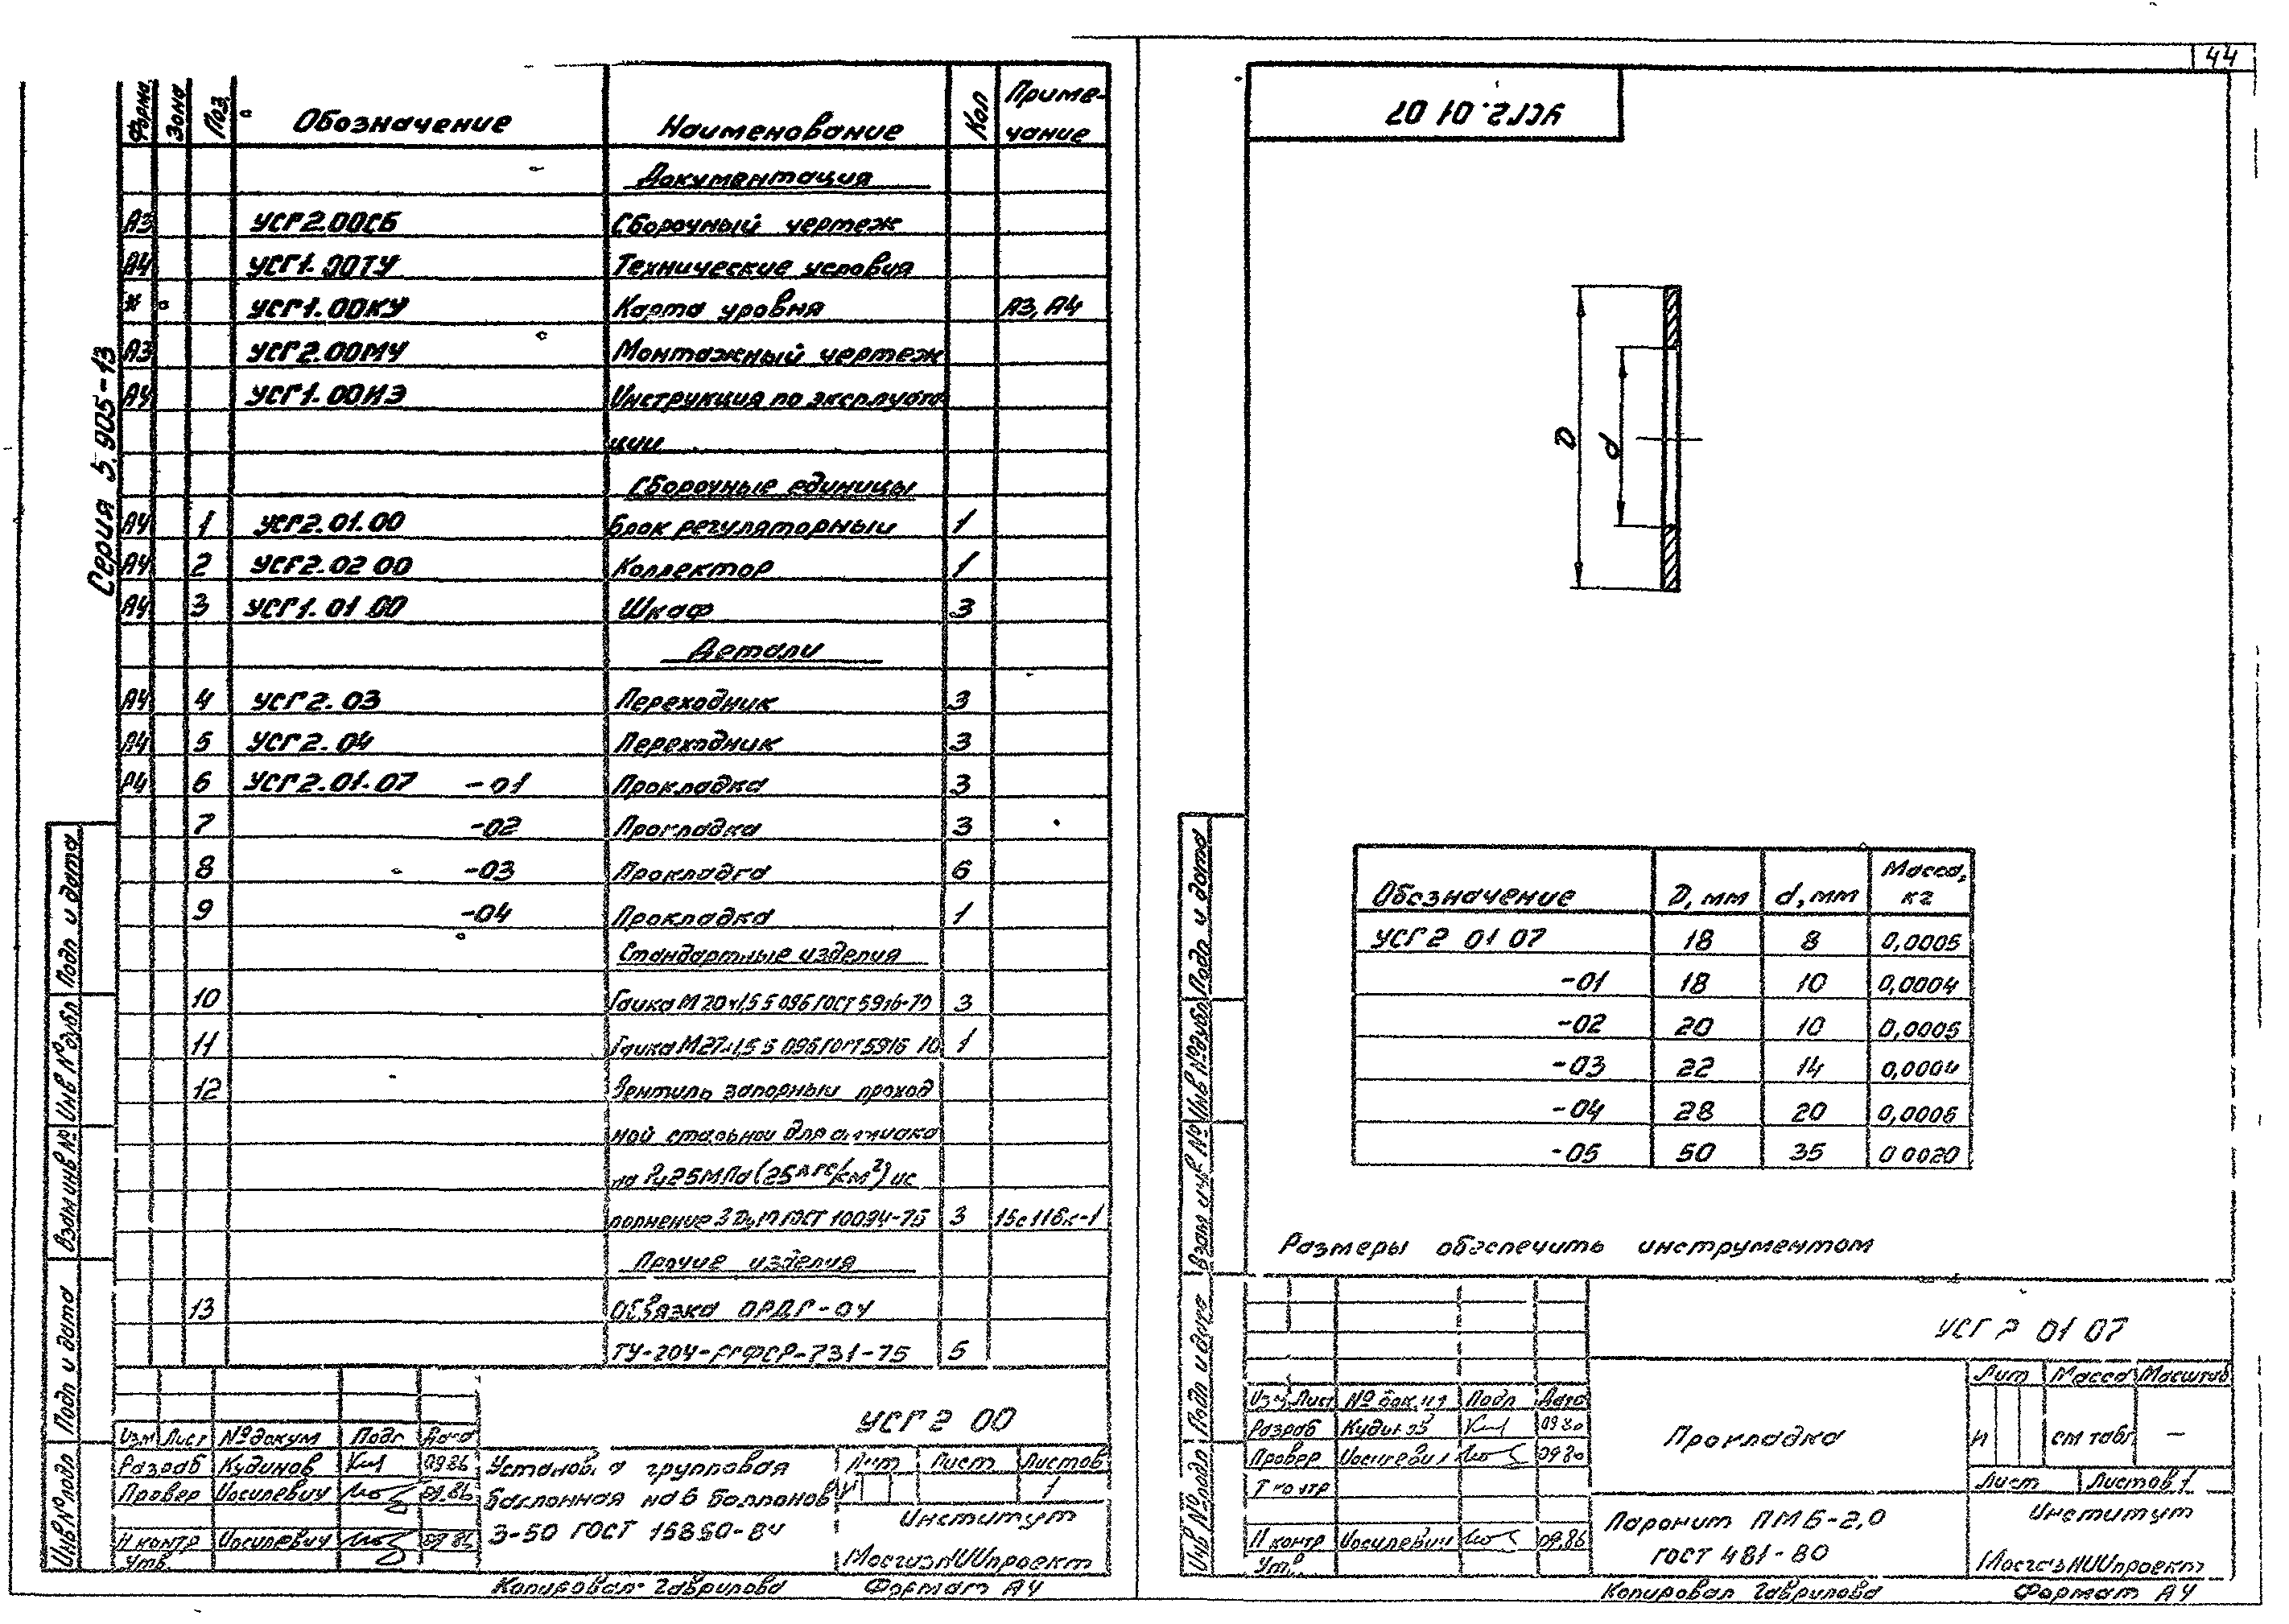 44
Серия 5.905-13
Форма Зона Поз. Обозначение Наименование Кол Приме-
чание
Документация
А3 УСГ2.00СБ Сборочный чертеж
А4 УСГ1.00ТУ Технические условия
* УСГ1.00КУ Карта уровня А3, А4
А3 УСГ2.00МЧ Монтажный чертеж
А4 УСГ1.00ИЭ Инструкция по эксплуата
ции
Сборочные единицы
А4 1 УСГ2.01.00 Блок регуляторный 1
А4 2 УСГ2.02 00 Коллектор 1
А4 3 УСГ1.01.00 Шкаф 3
Детали
А4 4 УСГ2.03 Переходник 3
А4 5 УСГ2.04 Переходник 3
А4 6 УСГ2.01.07 -01 Прокладка 3
7 -02 Прокладка 3
8 -03 Прокладка 6
9 -04 Прокладка 1
Стандартные изделия
10 Гайка М20х1,5 5 096 ГОСТ 5916-70 3
11 Гайка М27х1,5 5 096 ГОСТ 5916 70 1
12 Вентиль запорный проход
ной стальной для аммиака
на Ру25МПа (25 кгс/см²) ис
полнение 3 ГОСТ 10094-75 3 15с11бк-1
Прочие изделия
13 Обвязка ОРДГ-04
ТУ-204-РСФСР-731-75 5
Подп и дата
Инв №дубл
Взам инв №
Подп и дата
Инв №подл
УСГ 2 00
Изм Лист №докум Подп Дата
Разраб Кудинов 09.86
Провер Иосилевич 09.86
Н контр Иосилевич 09 86
Утв.
Установка групповая
баллонная на 6 баллонов
3-50 ГОСТ 15860-84
Лит Лист Листов
И 1
Институт
МосгазНИИпроект
Копировал Гаврилова Формат А4
УСГ2.01 07
D
d
Обозначение D, мм d, мм Масса,
кг
УСГ2 01 07 18 8 0,0005
-01 18 10 0,0004
-02 20 10 0,0005
-03 22 14 0,0004
-04 28 20 0,0006
-05 50 35 0 0020
Размеры обеспечить инструментом
Подп и дата
Инв №дубл
Взам инв №
Подп и дата
Инв №подл
УСГ 2 01 07
Изм Лист № докум Подп Дата
Разраб Кудинов 09 86
Провер Иосилевич 09 86
Т контр
Н контр Иосилевич 09.86
Утв.
Прокладка
Лит Масса Масштаб
И см табл —
Лист Листов 1
Паронит ПМБ-2,0
ГОСТ 481-80
Институт
МосгазНИИпроект
Копировал Гаврилова Формат А4